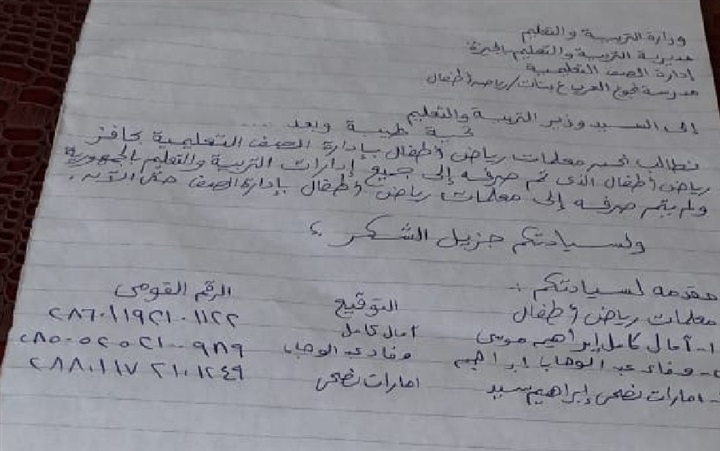 وزارة التربية والتعليم
مديرية التربية والتعليم بالجيزة
إدارة الصف التعليمية
مدرسة نجوع العرب ع بنات / رياض أطفال
إلى السيد وزير التربية والتعليم
تحية طيبة وبعد ....
نطالب نحن معلمات رياض أطفال بإدارة الصف التعليمية بحافز
رياض أطفال الذى تم صرفه إلى جميع إدارات التربية والتعليم بالجمهورية
ولم يتم صرفه إلى معلمات رياض أطفال بإدارة الصف حتى الآن .
ولسيادتكم جزيل الشكر ؟
مقدمه لسيادتكم :
معلمات رياض أطفال التوقيع الرقم القومى
١- آمال كامل إبراهيم موسى آمال كامل ٢٨٦٠١١٩٢١٠١١٢٢
٢- وفاء عبد الوهاب إبراهيم وفاء عبد الوهاب ٢٨٥٠٥٢٥٢١٠٠٩٨٩
- امارات نضحى إبراهيم سيد امارات نضحى ٢٨٨٠١١٧٢١٠١٢٤٩